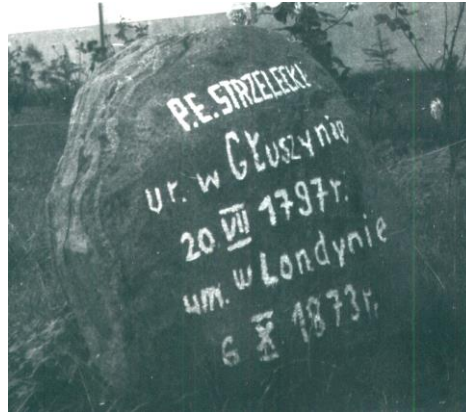 P.E. STRZELECKI
ur. w GŁuszynie
20 VII 1797r.
um. w Londynie
6 X 1873r.